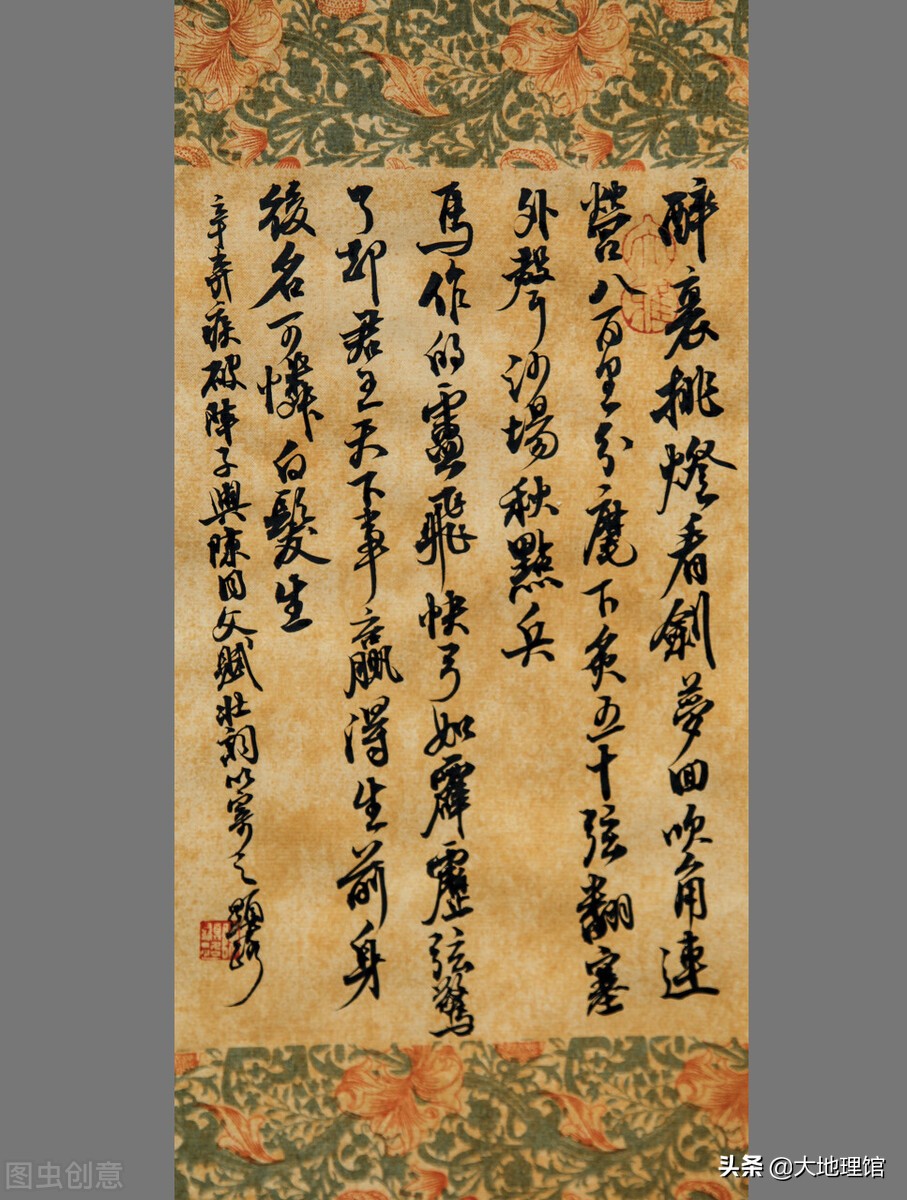 醉裏挑燈看劍夢回吹角連
營八百里分麾下炙五十弦翻塞
外聲沙場秋點兵
馬作的盧飛快弓如霹靂弦驚
了却君王天下事贏得生前身
後名可憐白髮生
辛棄疾破陣子與陳同父賦壯詞以寄之
图虫创意
头条 @大地理馆